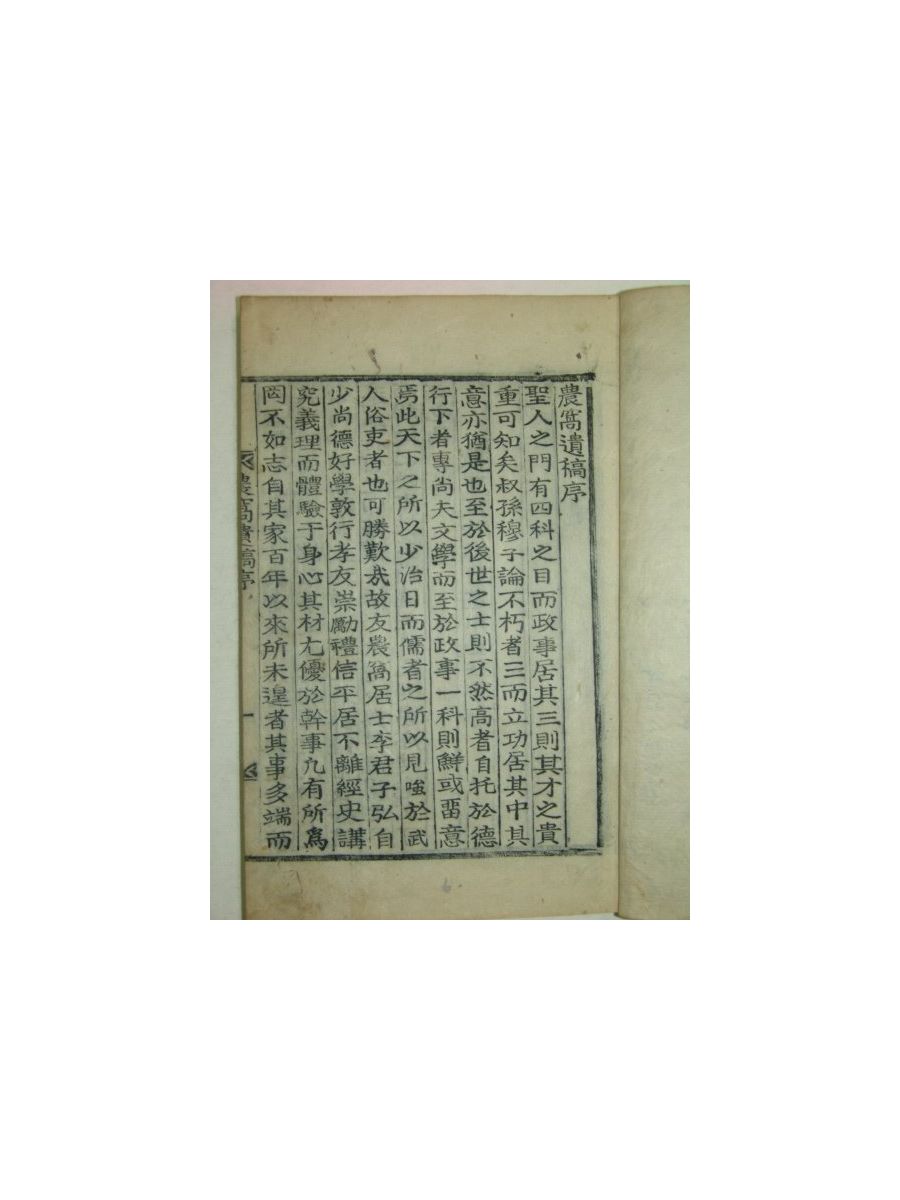 農窩遺稿序
聖人之門有四科之目而政事居其三則其才之貴
重可知矣叔孫穆子論不朽者三而立功居其中其
意亦猶是也至於後世之士則不然高者自托於德
行下者專尚夫文學而至於政事一科則鮮或畱意
焉此天下之所以少治日而儒者之所以見嗤於武
人俗吏者也可勝歎哉故友農窩居士李君子弘自
少尚德好學敦行孝友崇勵禮信平居不離經史講
究義理而體驗于身心其材尤優於幹事凡有所爲
罔不如志自其家百年以來所未遑者其事多端而
農窩遺稿序
一